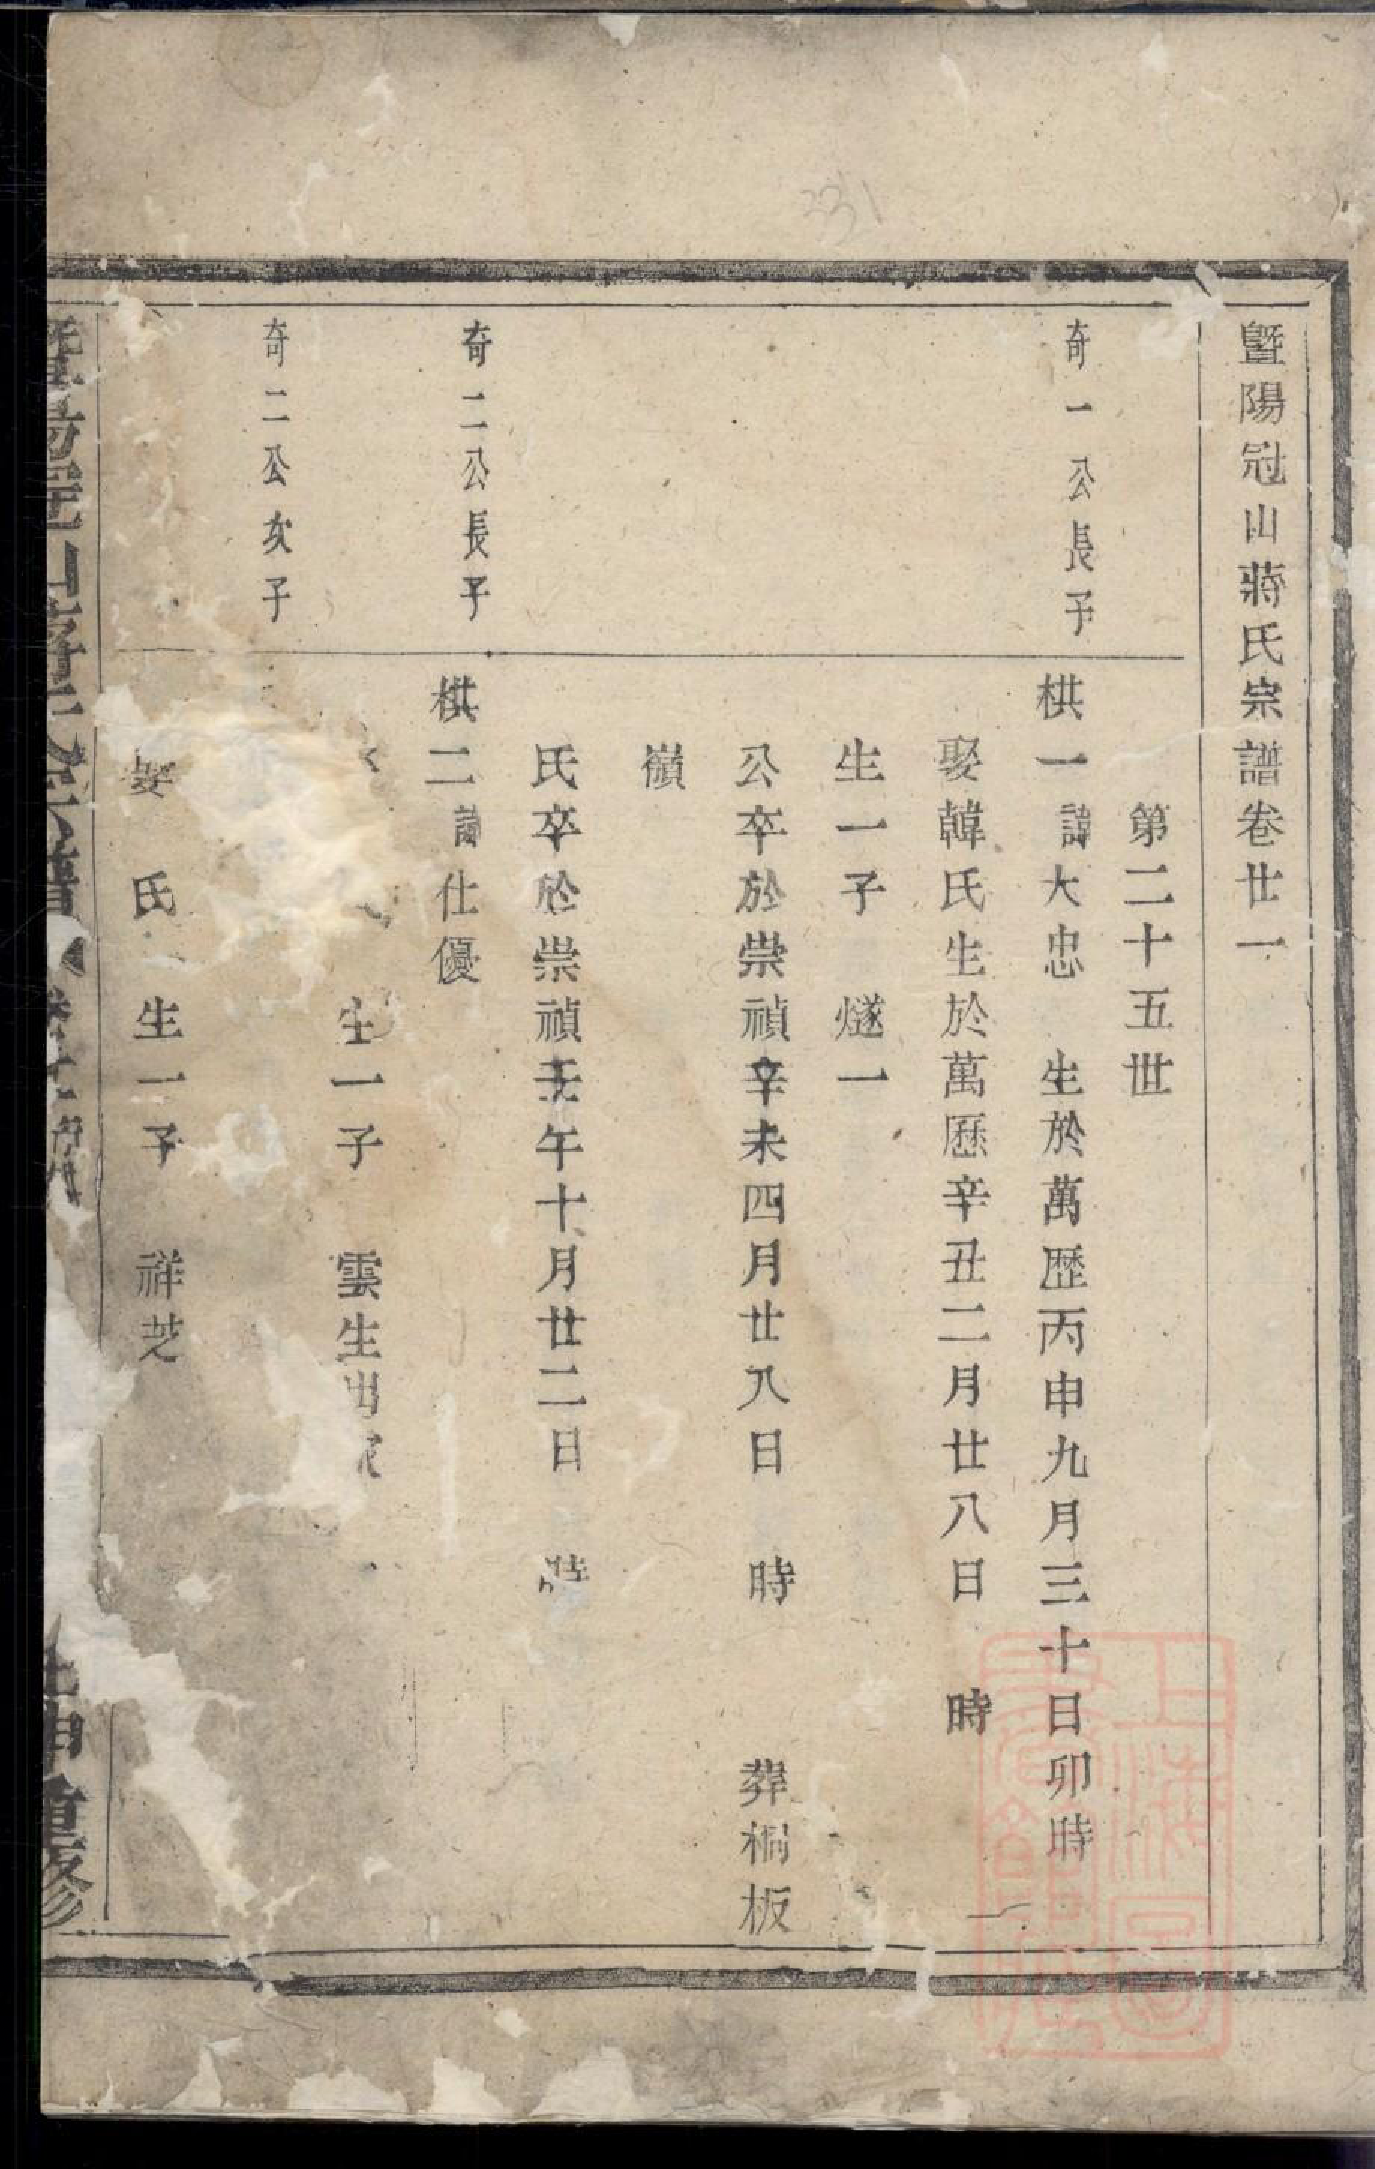 暨陽冠山蔣氏宗譜卷廿一
第二十五世
奇一公長子
栱一諱大忠 生於萬歷丙申九月三十日卯時
娶韓氏生於萬歷辛丑二月廿八日 時
生一子 燧一
公卒於崇禎辛未四月廿八日 時 葬桐板
嶺
氏卒於崇禎壬午十月廿二日 時
奇二公長子
栱二諱仕優
生一子 雲生出
奇二公次子
娶 氏 生一子 祥芝
暨陽冠山蔣氏宗譜
重修
上海圖書館藏
231